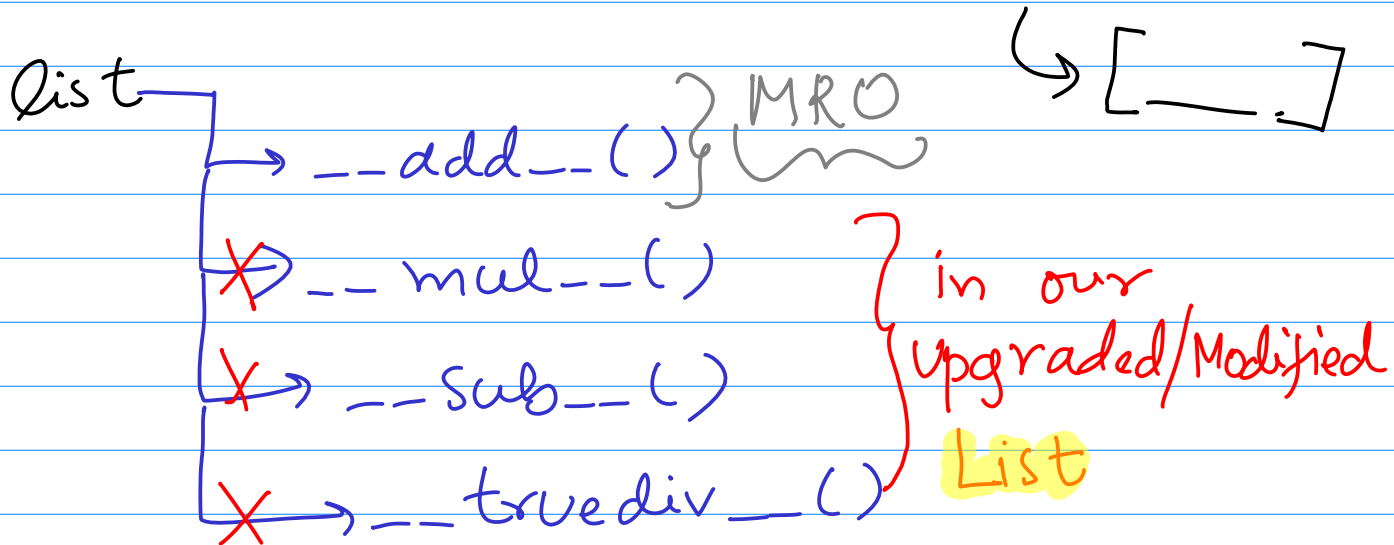 list
__add__() } MRO
[____.]
__mul__()
__sub__()
__truediv__()
in our
upgraded/Modified
List